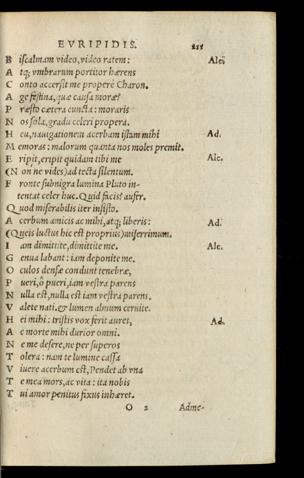 EVRIPIDIS.
B iscalmam video, video ratem: Alc.
A tq; vmbrarum portitor hærens
C onto accersit me properè Charon.
A ge festina, quæ causa moræ?
P ræsto cætera cuncta: moraris
N os sola, gradu celeri propera.
H eu, nauigationem acerbam istam mihi Ad.
M emoras: malorum quanta nos moles premit.
E ripit, eripit quidam tibi me Alc.
(N on ne vides) ad tecta silentum.
F ronte subnigra lumina Pluto in-
tentat celer huc. Quid facis? aufer.
Q uod miserabilis iter insisto.
A cerbum amicis ac mihi, atq; liberis: Ad.
(Queis luctus hic est proprius) miserrimum.
I am dimittite, dimittite me. Alc.
G enua labant: iam deponite me.
O culos densæ condunt tenebræ,
P ueri, ô pueri, iam vestra parens
N ulla est, nulla est iam vestra parens.
V alete nati, & lumen almum cernite.
H ei mihi: tristis vox ferit aures, Ad.
A c morte mihi durior omni.
N e me desere, ne per superos
T olera: nam te lumine cassa
V iuere acerbum est, Pendet ab vna
T e mea mors, ac vita: ita nobis
T ui amor penitus fixus inhæret.
O 2 Adme-